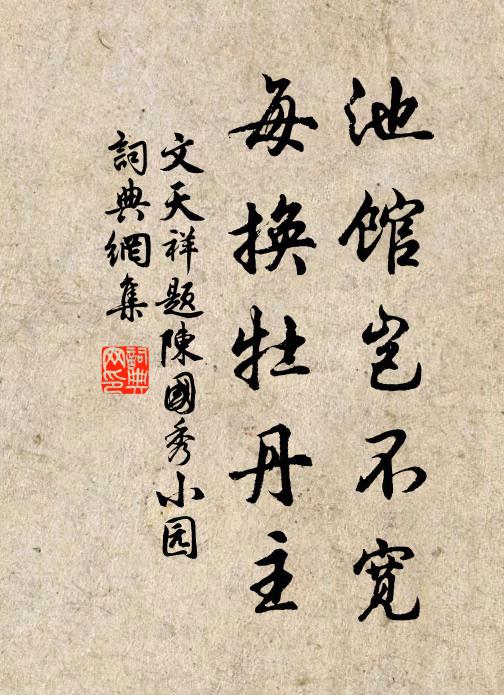 池館岂不寬
每換牡丹主
文天祥題陳國秀小园
詞典網集
詞典
网印